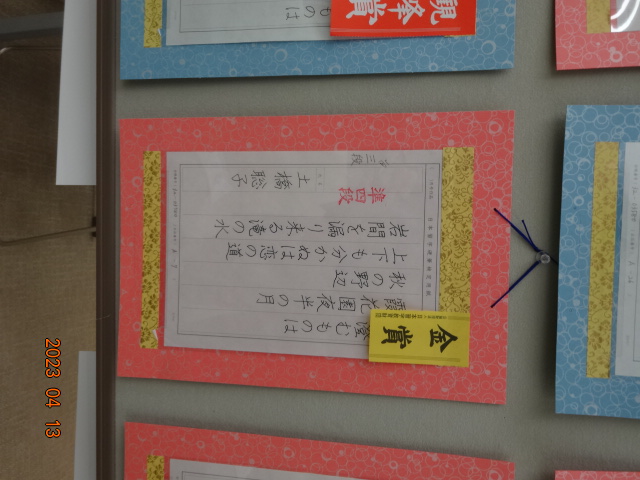 観峰賞
ものは
金賞
澄むものは
霞花園夜半の月
秋の野辺
上下も分かぬは恋の道
岩間を漏り来る滝の水
準四段
三段
土橋聡子
2023 04 13